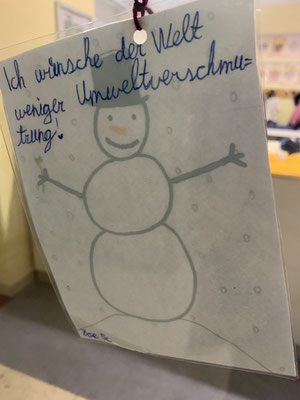 Ich wünsche der Welt
weniger Umweltverschmu=
trung!
Zoe S.